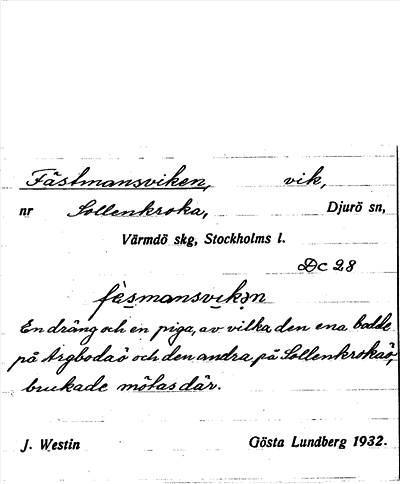 Fästmansviken, vik,
nr Sollenkroka, Djurö sn,
Värmdö skg, Stockholms l.
Dc 28
fèsmansvikən
En dräng och en piga, av vilka den ena bodde
på Argbodaö och den andra på Sollenkrokaö,
brukade mötas där.
J. Westin Gösta Lundberg 1932.